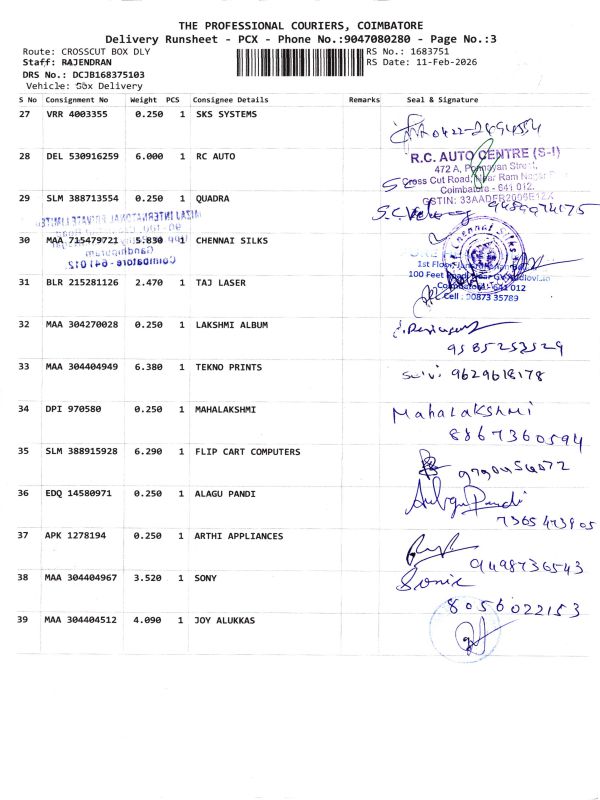 THE PROFESSIONAL COURIERS, COIMBATORE
Delivery Runsheet - PCX - Phone No.:9047080280 - Page No.:3
Route: CROSSCUT BOX DLY RS No.: 1683751
Staff: RAJENDRAN RS Date: 11-Feb-2026
DRS No.: DCJB168375103
Vehicle: Box Delivery
S No Consignment No Weight PCS Consignee Details Remarks Seal & Signature
27 VRR 4003355 0.250 1 SKS SYSTEMS
28 DEL 530916259 6.000 1 RC AUTO
R.C. AUTO CENTRE (S-I)
472 A, Ponnayan Street,
Cross Cut Road, Near Ram Nagar
Coimbatore - 641 012.
29 SLM 388713554 0.250 1 QUADRA
30 MAA 715479721 5.830 1 CHENNAI SILKS
Chennai Silks
Gandhipuram
Coimbatore - 641 012.
1st Floor
100 Feet Road
Coimbatore - 641 012
Cell : 90873 35789
31 BLR 215281126 2.470 1 TAJ LASER
32 MAA 304270028 0.250 1 LAKSHMI ALBUM
9585253529
33 MAA 304404949 6.380 1 TEKNO PRINTS
9629618178
34 DPI 970580 0.250 1 MAHALAKSHMI
MahaLakshmi
8867360594
35 SLM 388915928 6.290 1 FLIP CART COMPUTERS
36 EDQ 14580971 0.250 1 ALAGU PANDI
7365473905
37 APK 1278194 0.250 1 ARTHI APPLIANCES
9498736543
38 MAA 304404967 3.520 1 SONY
Sonic
8056022153
39 MAA 304404512 4.090 1 JOY ALUKKAS